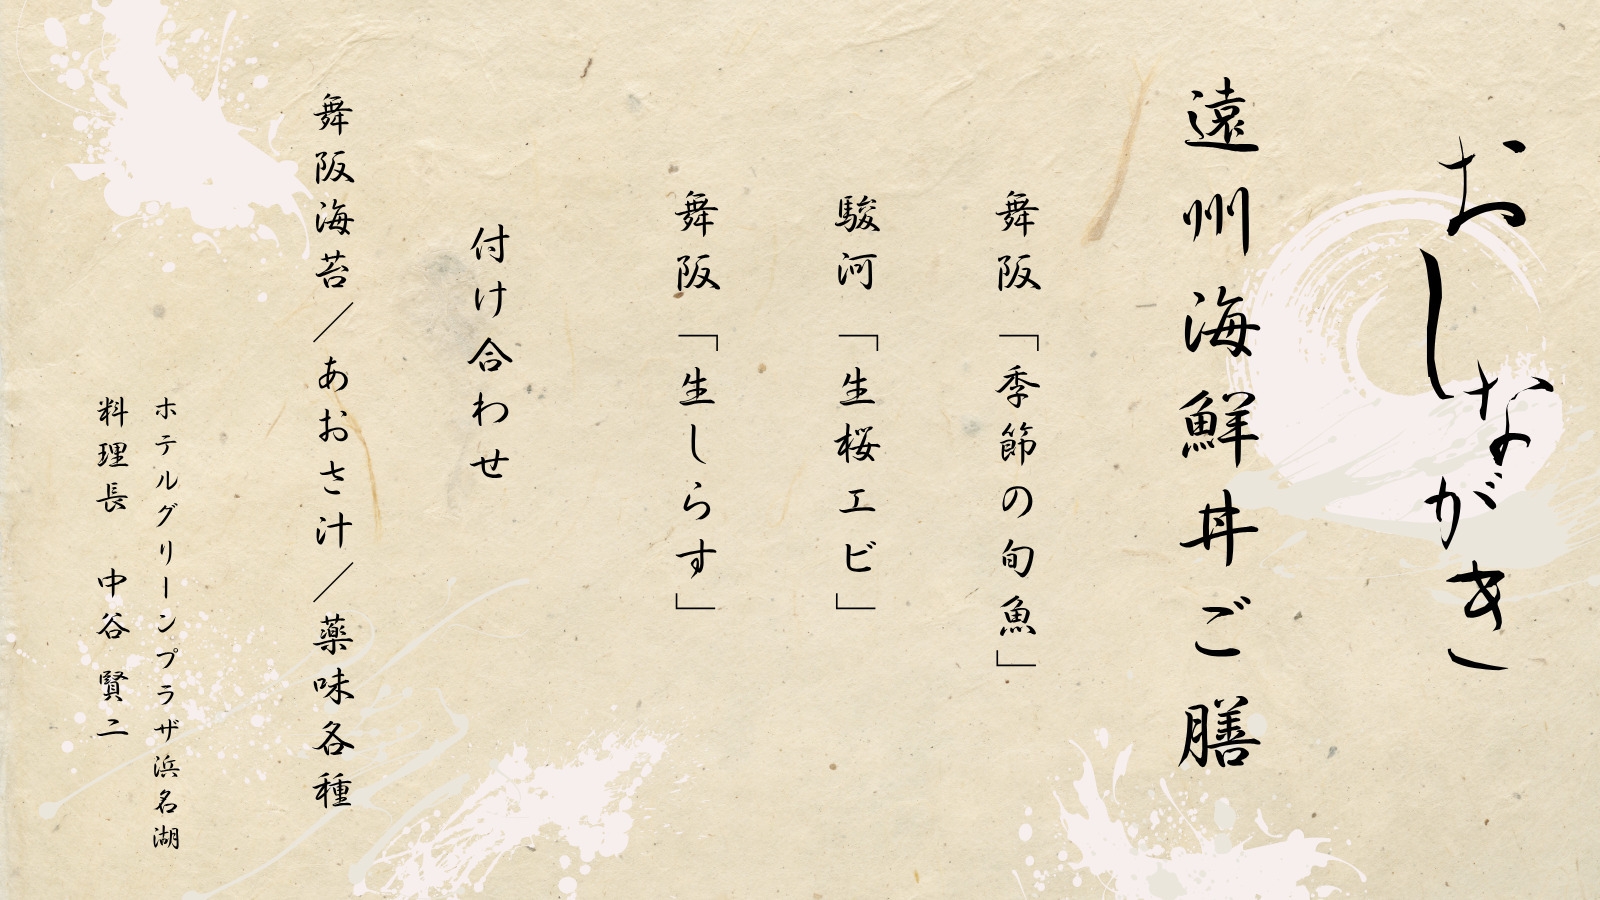 おしながき
遠州海鮮丼ご膳
舞阪「季節の旬魚」
駿河「生桜エビ」
舞阪「生しらす」
付け合わせ
舞阪海苔／あおさ汁／薬味各種
ホテルグリーンプラザ浜名湖
料理長　中谷　賢二